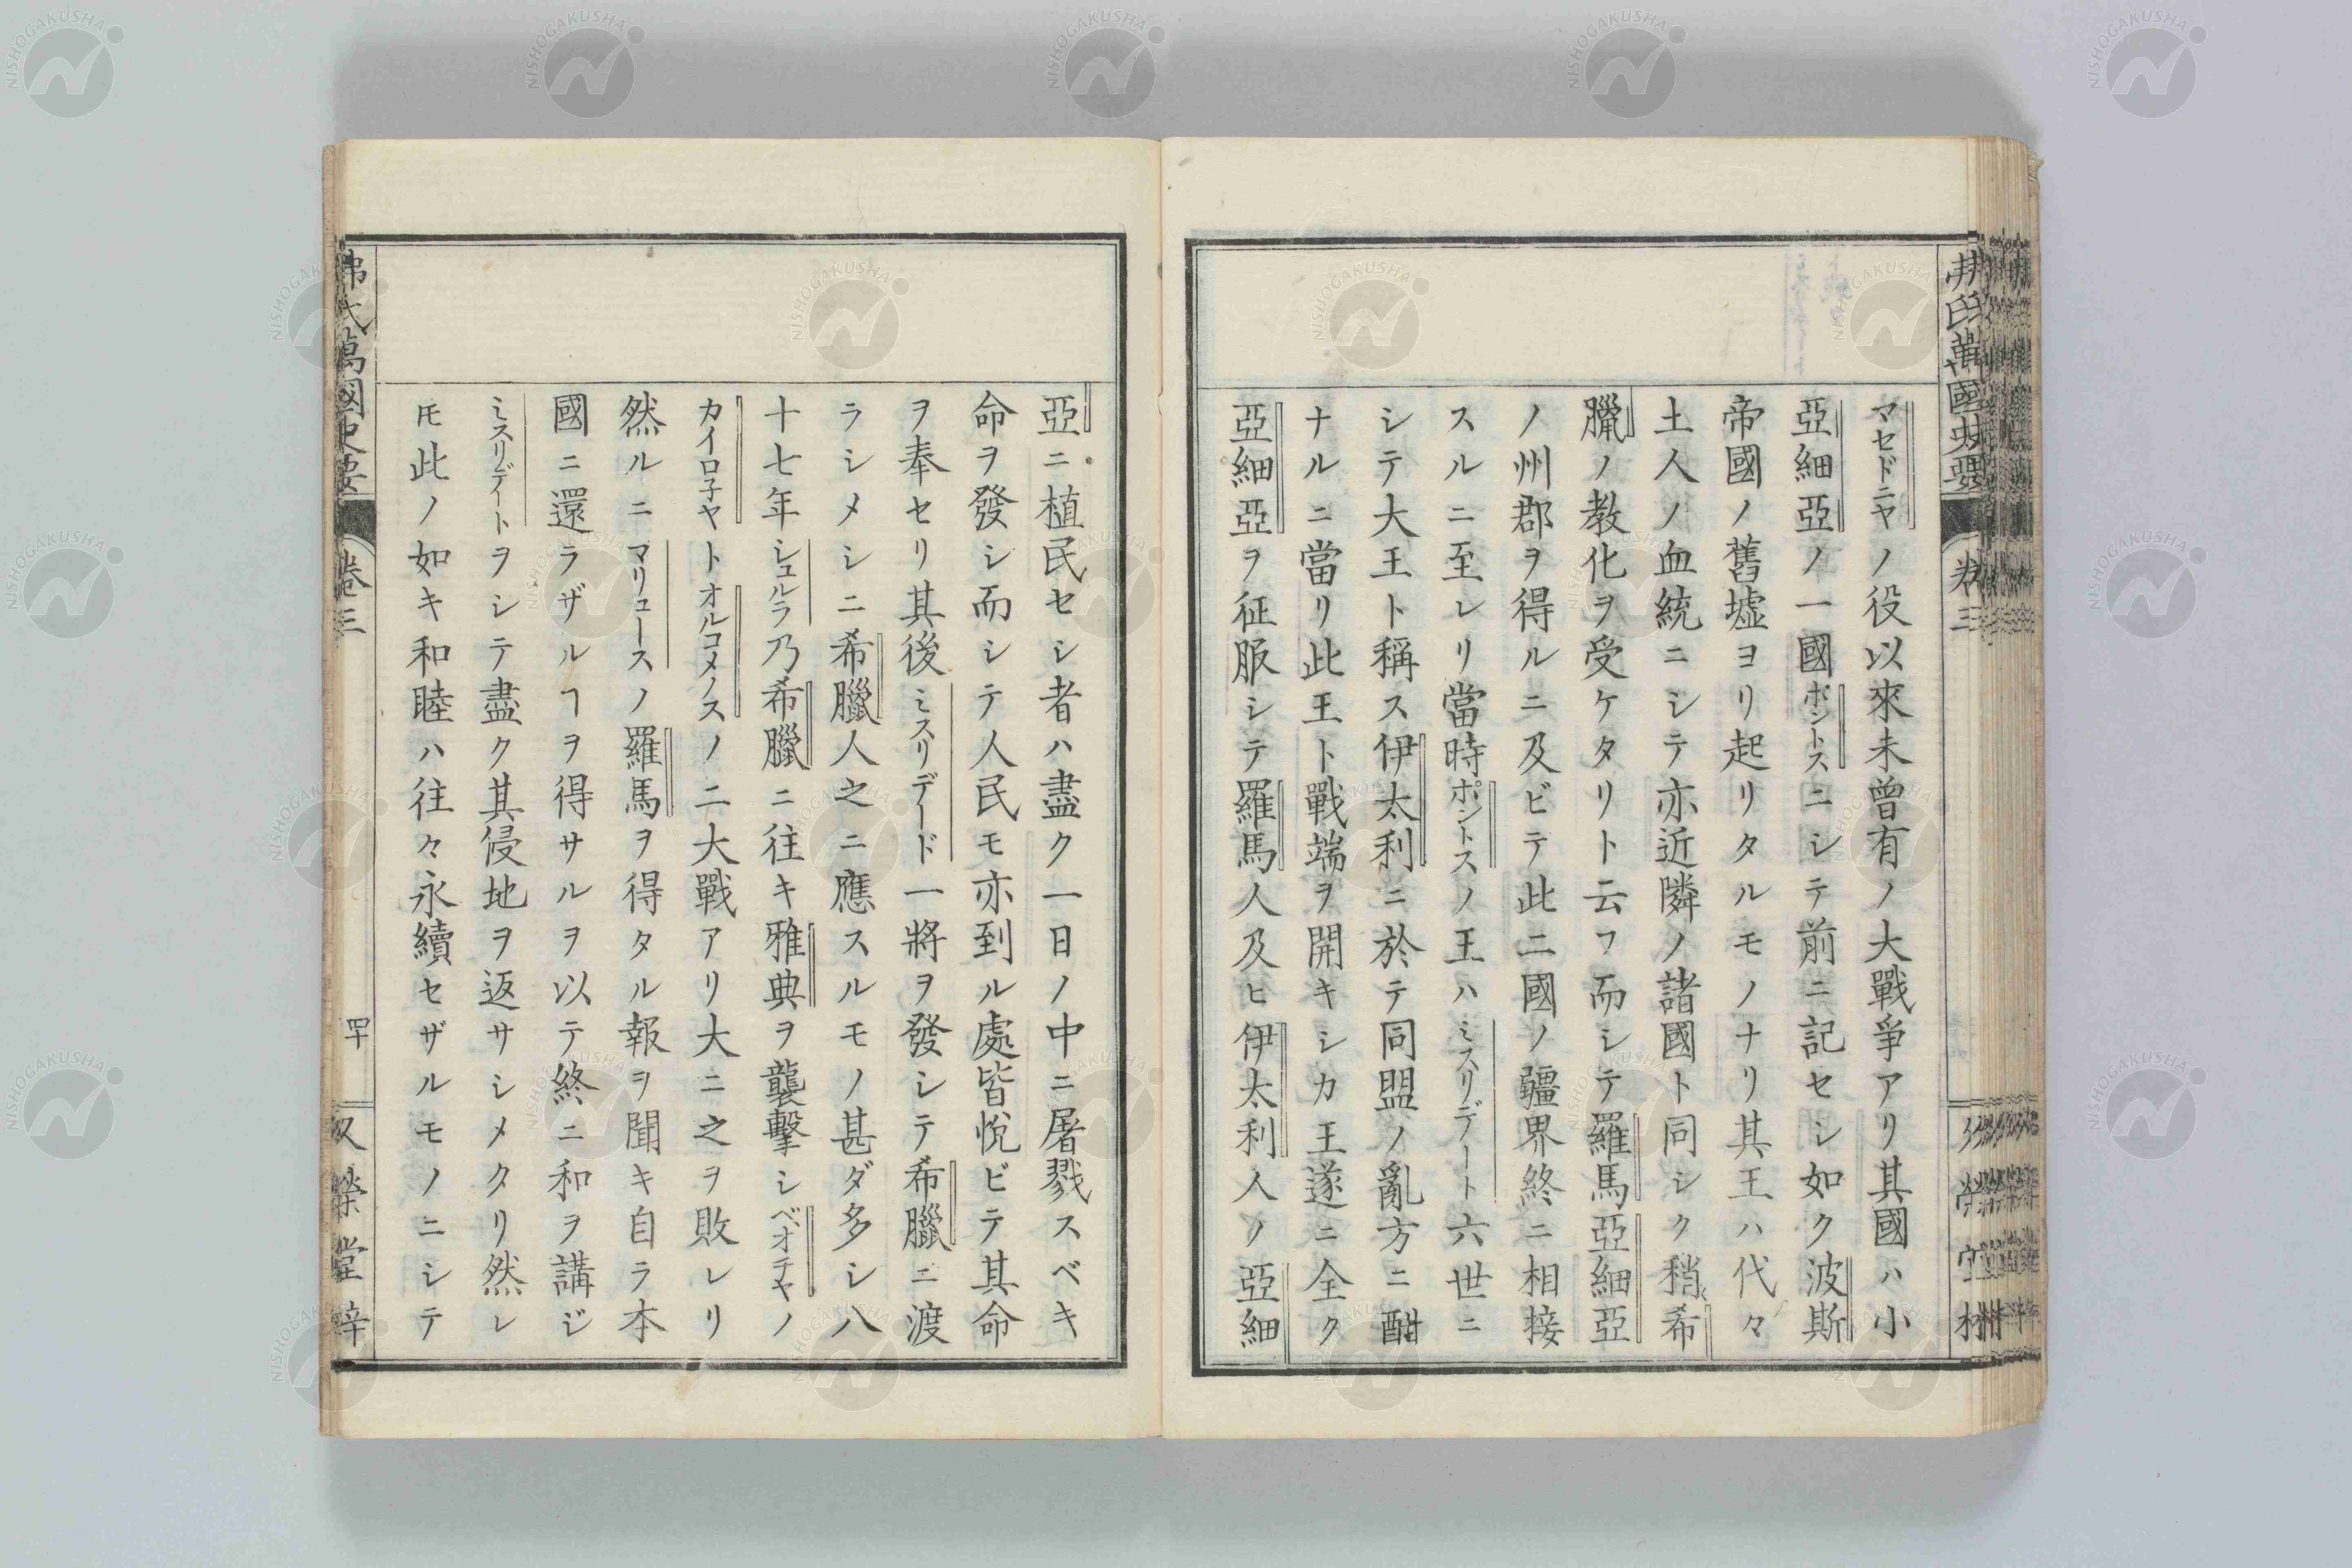 マセドニヤノ役以來未曾有ノ大戰爭アリ其國ハ小
亞細亞ノ一國ポントスニシテ前ニ記セシ如ク波斯
帝國ノ舊墟ヨリ起リタルモノナリ其王ハ代々
土人ノ血統ニシテ亦近隣ノ諸國ト同シク稍希
臘ノ教化ヲ受ケタリト云フ而シテ羅馬亞細亞
ノ州郡ヲ得ルニ及ビテ此二國ノ疆界終ニ相接
スルニ至レリ當時ポントスノ王ハミスリデート六世ニ
シテ大王ト稱ス伊太利ニ於テ同盟ノ亂方ニ酣
ナルニ當リ此王ト戰端ヲ開キシカ王遂ニ全ク
亞細亞ヲ征服シテ羅馬人及ヒ伊太利人ノ亞細
亞ニ植民セシ者ハ盡ク一日ノ中ニ屠戮スベキ
命ヲ發シ而シテ人民モ亦到ル處皆悅ビテ其命
ヲ奉セリ其後ミスリデード一將ヲ發シテ希臘ニ渡
ラシメシニ希臘人之ニ應スルモノ甚ダ多シ八
十七年シュルラ乃希臘ニ往キ雅典ヲ襲擊シベオチヤノ
カイロ子ヤトオルコメノスノ二大戰アリ大ニ之ヲ敗レリ
然ルニマリュースノ羅馬ヲ得タル報ヲ聞キ自ラ本
國ニ還ラザルヿヲ得サルヲ以テ終ニ和ヲ講ジ
ミスリデートヲシテ盡ク其侵地ヲ返サシメタリ然レ
𪜈此ノ如キ和睦ハ往々永續セザルモノニシテ
弗氏萬國史要
卷三
四十
NISHOGAKUSHA